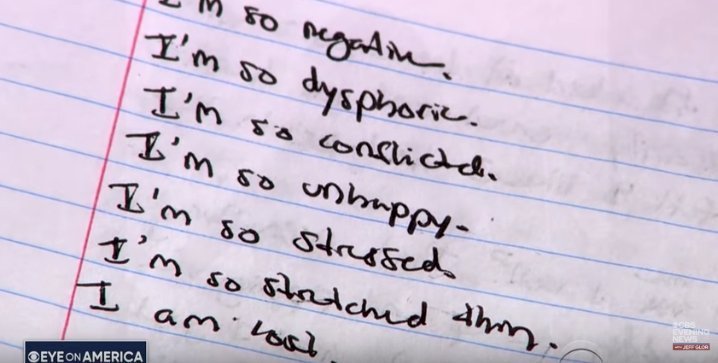 I'm so negative.
I'm so dysphoric.
I'm so conflicted.
I'm so unhappy.
I'm so stressed.
I'm so stretched thin.
I am lost.
EYE ON AMERICA
CBS
EVENING
NEWS
WITH JEFF GLOR